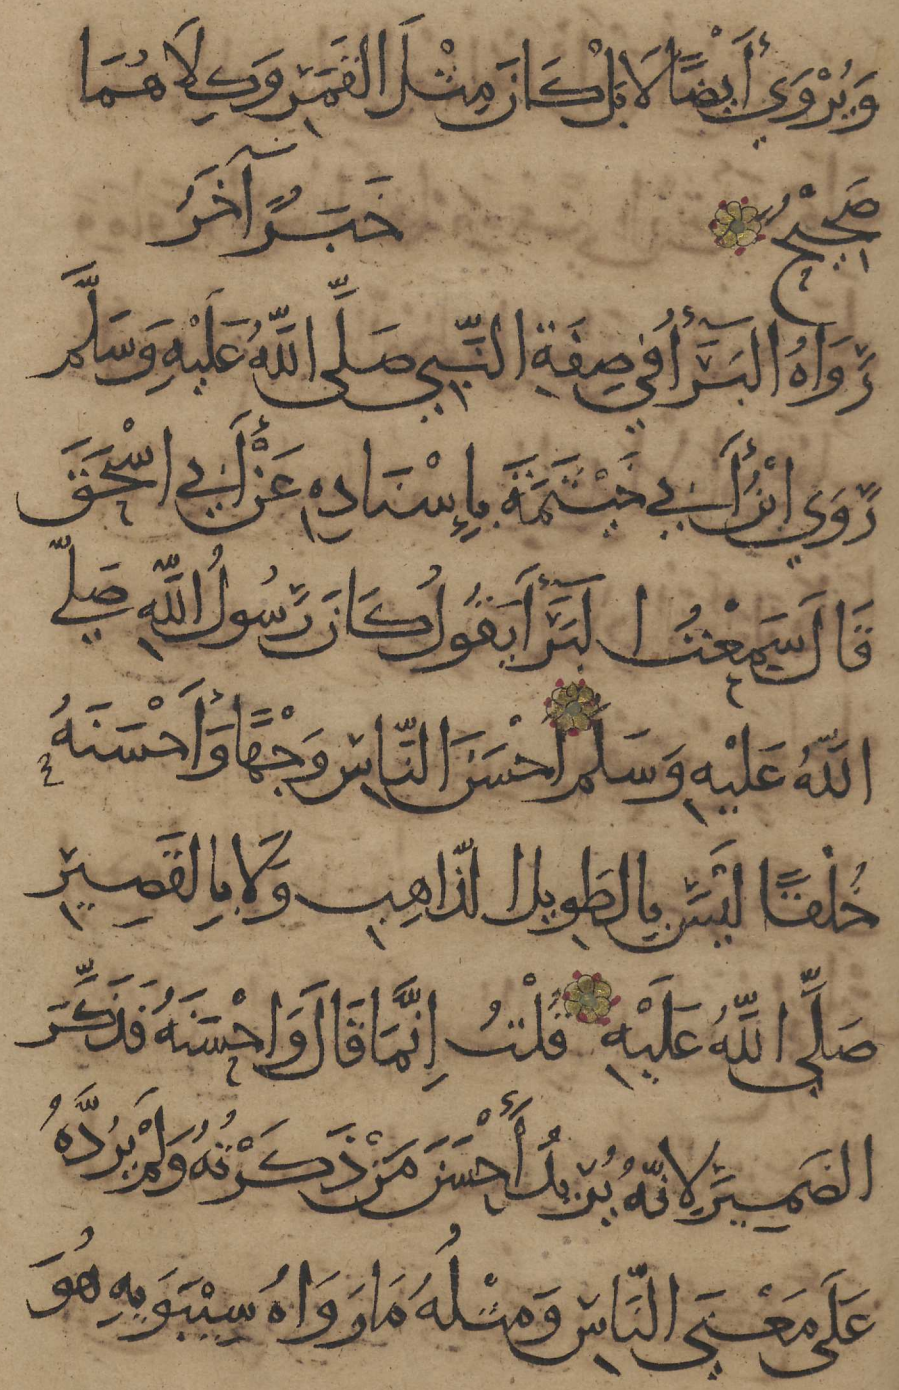 وَيُرْوَي أَيْضًا لَا بَلْ كَانَ مِثْلَ الْقَمَرِ وَكِلَاهُمَا
صَحِيْحٌ خَبَرٌ آخَرُ
رَوَاهُ البَرَآءُ فِي صِفَةِ النَّبِيِّ صَلَّى اللَّهُ عَلَيْهِ وَسَلَّمَ
رَوَي ابْنُ أَبِي خَيْثَمَةَ بِإِسْنَادِهِ عَنْ أَبِي اسْحَقَ
قَالَ سَمِعْتُ البَرَآءَ يَقُولُ كَانَ رَسُولُ اللَّهِ صَلَّي
اللَّهُ عَلَيْهِ وَسَلَّمَ أَحْسَنَ النَّاسِ وَجْهًا وَأَحْسَنَهُ
خُلْقًا لَيْسَ بِالطَوِيلِ الذّاهِبِ وَلَا بِالقَصِيرِ
صَلَّي اللَّهُ عَلَيْهِ قُلْتُ إِنَّمَا قَالَ وَاحْسَنَهُ فَذَكَّرَ
الضَمِيرَ لِانَّهُ يُرِيدُ أَحْسَنَ مَنْ ذَكَرْتُهُ وَلَمْ يَرُدَّهُ
عَلَى مَعْنَى النَّاسِ وَمِثْلُهُ مَا رَوَاهُ سِيْبَوَيهِ هُوَ